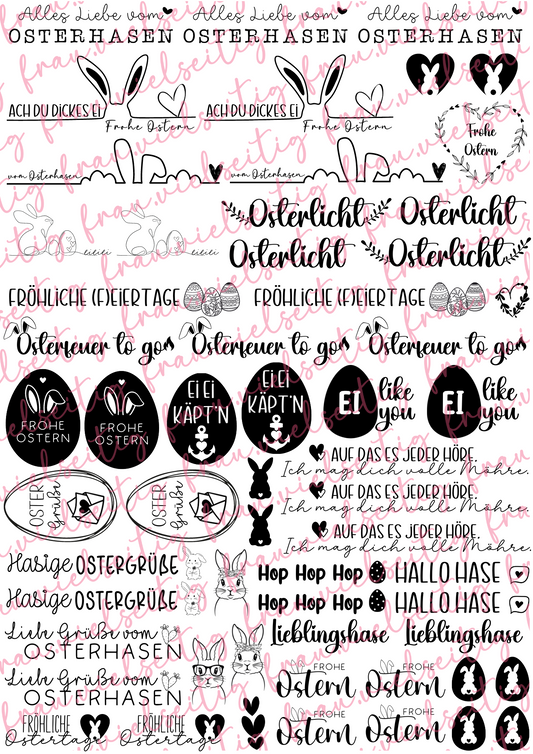 Alles Liebe vom Alles Liebe vom Alles Liebe vom
OSTERHASEN OSTERHASEN OSTERHASEN
ACH DU DICKES EI ACH DU DICKES EI
Frohe Ostern Frohe Ostern
Frohe
Ostern
vom Osterhasen vom Osterhasen
Osterlicht Osterlicht
Osterlicht Osterlicht
FRÖHLICHE (F)EIERTAGE FRÖHLICHE (F)EIERTAGE
Osterfeuer to go Osterfeuer to go Osterfeuer to go
FROHE
OSTERN
FROHE
OSTERN
EI EI
KÄPT'N
EI EI
KÄPT'N
EI like
you
EI like
you
OSTER
Grüße
OSTER
Grüße
AUF DAS ES JEDER HÖRE.
Ich mag dich volle Möhre.
AUF DAS ES JEDER HÖRE.
Ich mag dich volle Möhre.
AUF DAS ES JEDER HÖRE.
Ich mag dich volle Möhre.
Hasige OSTERGRÜßE
Hasige OSTERGRÜßE
Hop Hop Hop HALLO HASE
Hop Hop Hop HALLO HASE
Liebe Grüße vom
OSTERHASEN
Liebe Grüße vom
OSTERHASEN
Lieblingshase Lieblingshase
FROHE
Ostern
FROHE
Ostern
FROHE
Ostern
FROHE
Ostern
FRÖHLICHE
Ostertage
FRÖHLICHE
Ostertage
frau.vielseitig